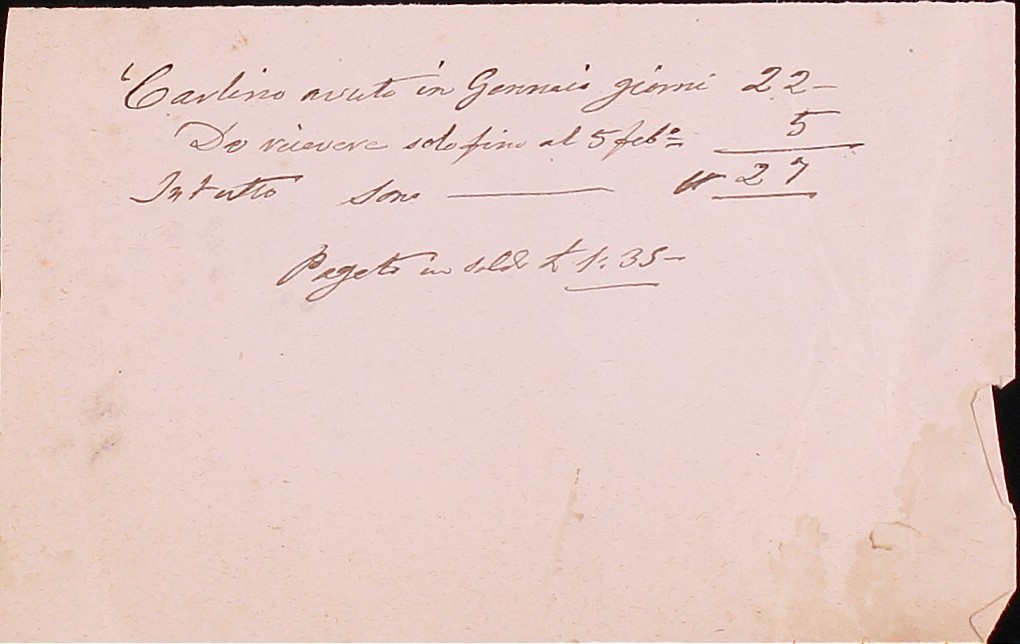 Carlino avuto in Gennaio giorni 22-
Da ricevere solo fino al 5 febº= 5
In tutto sono —— 27
Pagato in soldi £ 1:35-